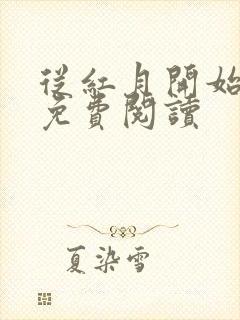 從紅月開始
免費閱讀
夏染雪